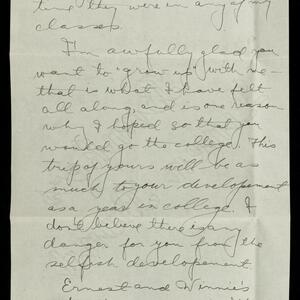 time they were in any of my
classes.
I'm awfully glad you
want to "grow up" with me—
that is what I have felt
all along, and is one reason
why I hoped so that you
would go the college. This
trip of yours will be as
much to your developement
as a year in college. I
don't believe there is any
danger for you from the
selfish developement
Ernest and Winnie's